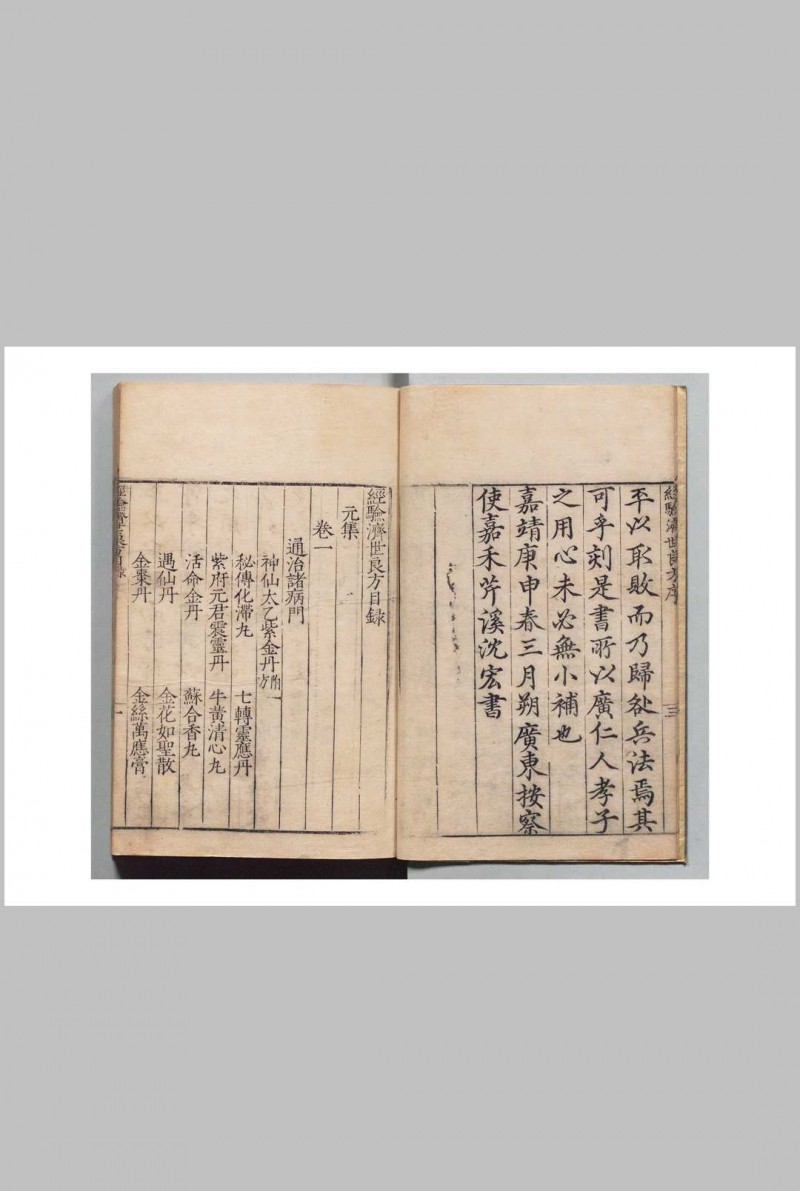 經驗濟世良方序
三
平以取敗而乃歸咎兵法焉其
可乎刻是書所以廣仁人孝子
之用心未必無小補也
嘉靖庚申春三月朔廣東按察
使嘉禾芹溪沈宏書
經驗濟世良方目錄
元集
卷一
通治諸病門
神仙太乙紫金丹附方一
秘傳化滯丸 七轉靈應丹
紫府元君震靈丹 牛黃清心丸
活命金丹 蘇合香丸
遇仙丹 金花如聖散
金棗丹 金絲萬應膏
經驗濟世良方目錄
一